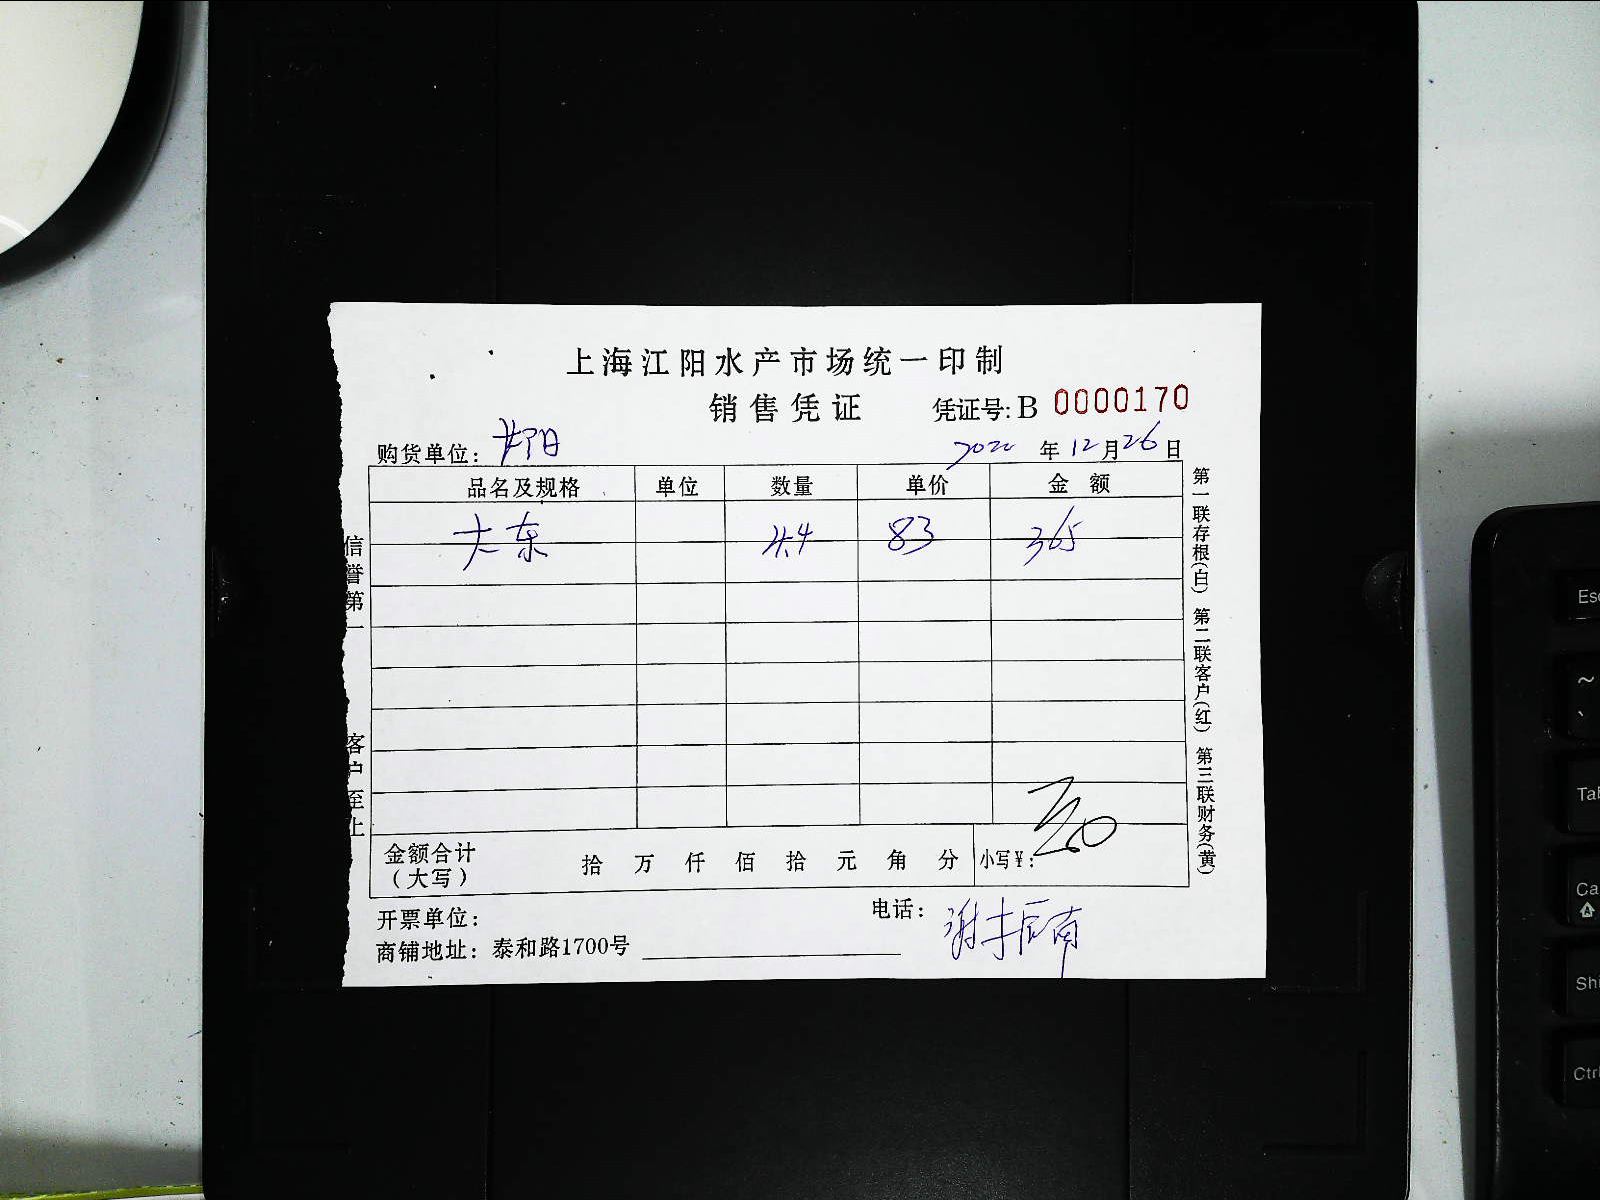 上海江阳水产市场统一印制
销售凭证 凭证号: B 0000170
购货单位: 2022 年 12 月 26 日
品名及规格 单位 数量 单价 金额
大东 4.4 83 365
金额合计(大写) 拾 万 仟 佰 拾 元 角 分 小写¥:
开票单位: 电话: 谢振南
商铺地址: 泰和路1700号
信誉第一 客户至上
第一联存根(白) 第二联客户(红) 第三联财务(黄)
Esc
~
Tab
Ca
Shi
Ctrl